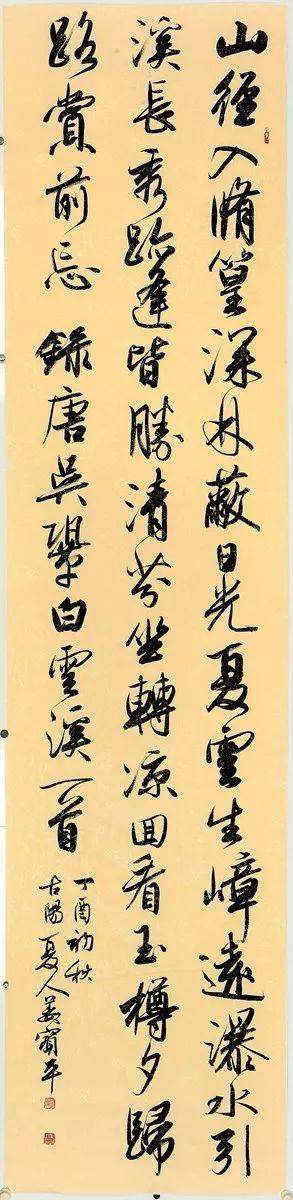 山徑入脩篁深林蔽日光夏雲生嶂遠瀑水引
溪長秀跡逢皆勝清芬坐轉涼回看玉樽夕歸
路賞前忘 錄唐吳鞏白雲溪一首
丁酉初秋
古陽夏人姜平